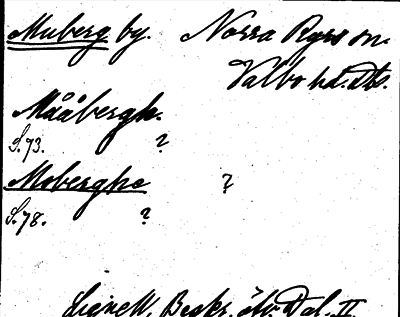 Muberg by. Norra Ryrs sn.
Valbo hd. Ds.
Mååbergh.
S. 73. ?
Moberghe ?
S. 78. ?
Lignell, Beskr. öfv. Dal. II.